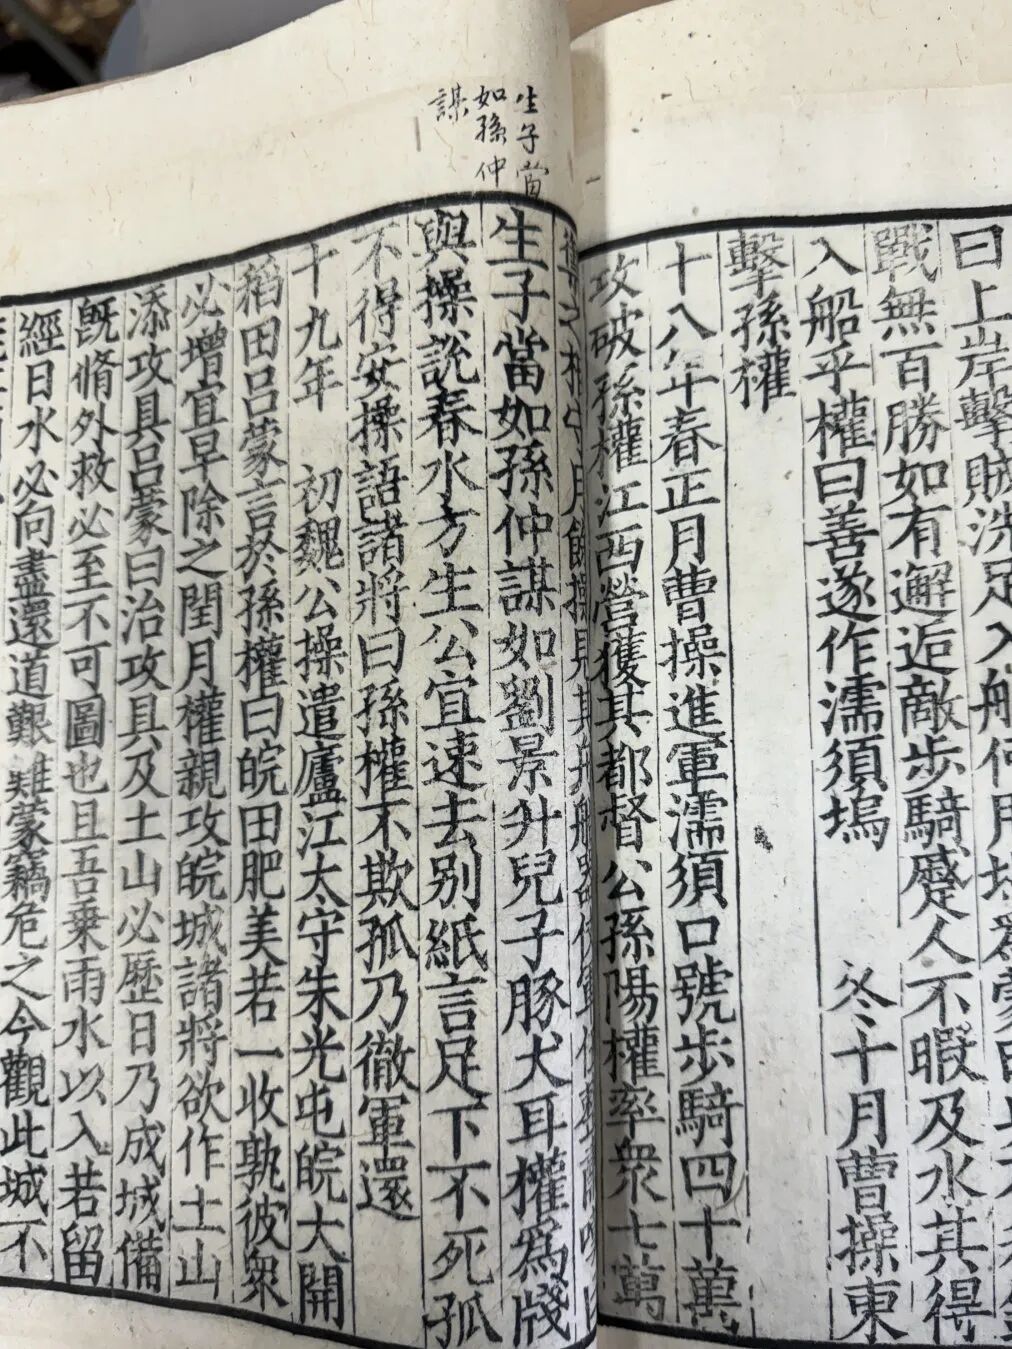 曰上岸擊賊洗足入船何用塢爲蒙曰
戰無百勝如有邂逅敵步騎蹙人不暇及水其得
入船乎權曰善遂作濡須塢　冬十月曹操東
擊孫權
十八年春正月曹操進軍濡須口號步騎四十萬
攻破孫權江西營獲其都督公孫陽權率衆七萬
禦之相守月餘操見其舟船器仗軍伍整肅
生子當
如孫仲
謀
生子當如孫仲謀如劉景升兒子豚犬耳權爲牋
與操說春水方生公宜速去别紙言足下不死孤
不得安操語諸將曰孫權不欺孤乃徹軍還
十九年　初魏公操遣廬江太守朱光屯皖大開
稻田呂蒙言於孫權曰皖田肥美若一收孰彼衆
必增宜早除之閏月權親攻皖城諸將欲作土山
添攻具呂蒙曰治攻具及土山必歷日乃成城備
旣脩外救必至不可圖也且吾乗雨水以入若留
經日水必向盡還道艱難蒙竊危之今觀此城不